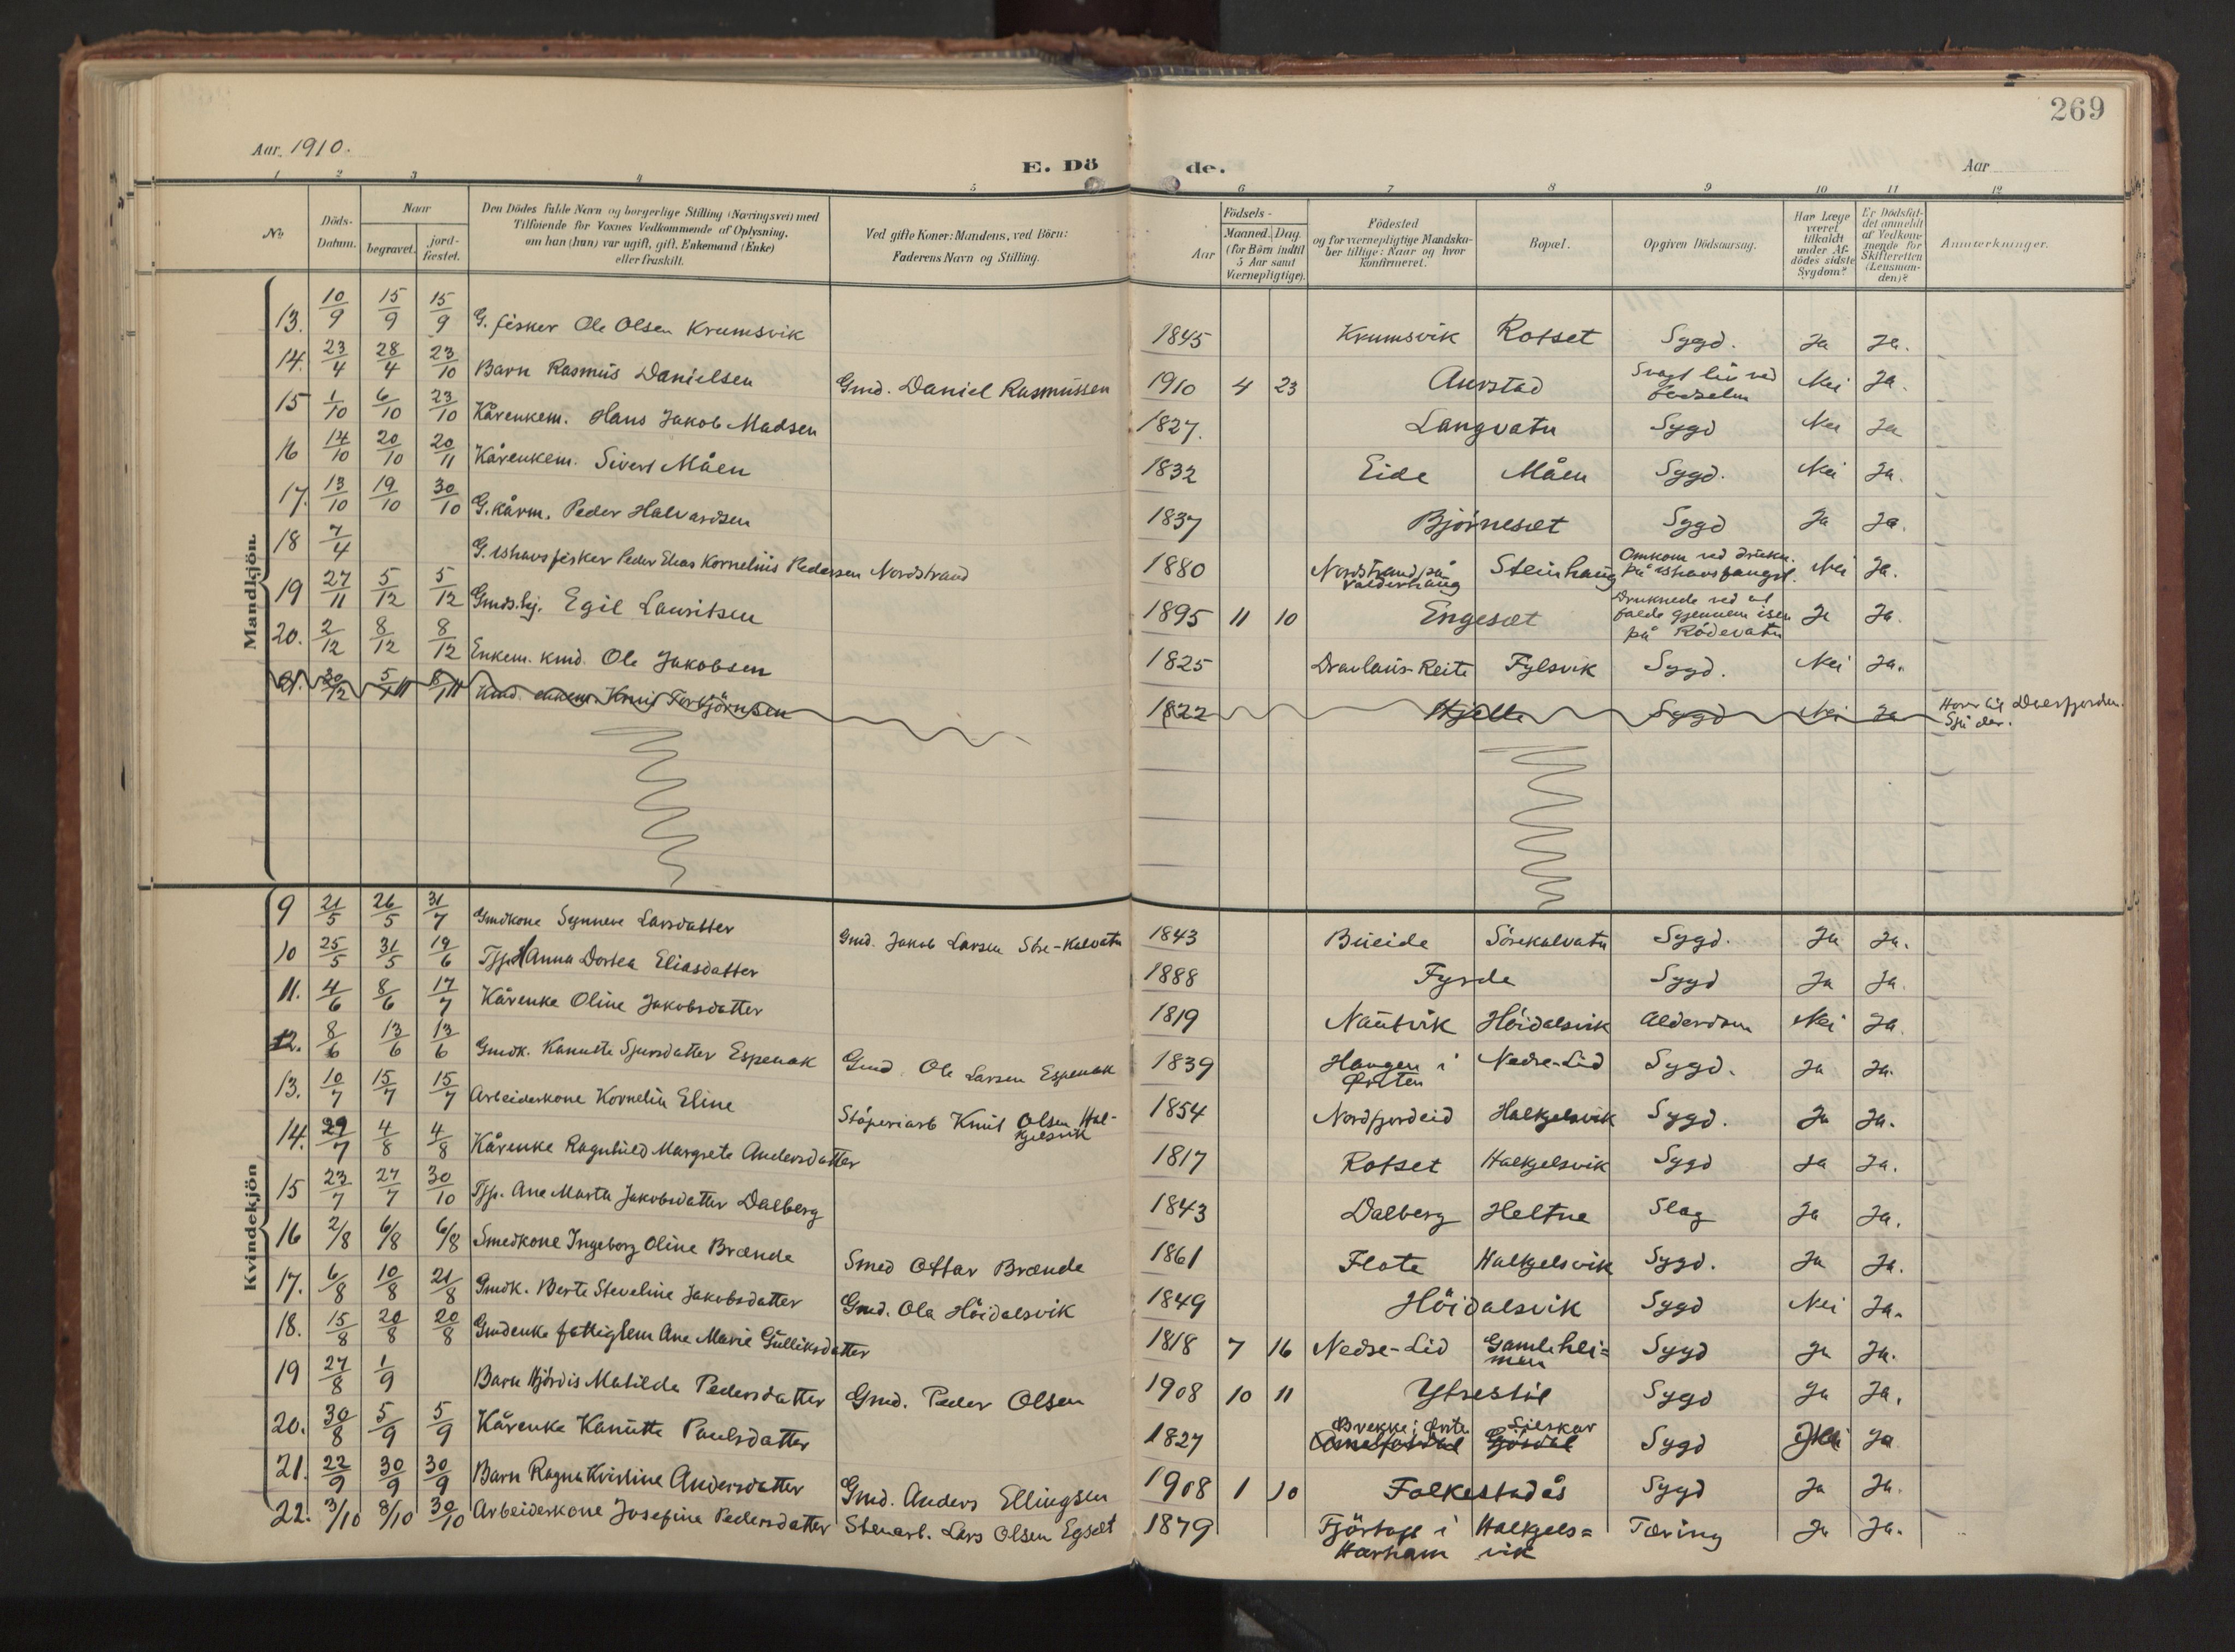 269
Aar 1910.
E. Dö de.
Aar
1 2 3 4 5 6 7 8 9 10 11 12
No
Döds-Datum.
Naar
begravet.
jord-fæstet.
Den Dödes fulde Navn og borgerlige Stilling (Næringsvei) med
Tilföiende for Voxnes Vedkommende af Oplysning,
om han (hun) var ugift, gift, Enkemand (Enke)
eller fraskilt.
Ved gifte Koner: Mandens, ved Börn:
Faderens Navn og Stilling.
Födsels-
Aar
Maaned. Dag.
(for Börn indtil
5 Aar samt
Værnepligtige).
Födested
og for værnepligtige Mandska-
ber tillige: Naar og hvor
konfirmeret.
Bopæl.
Opgiven Dödsaarsag.
Har Læge
været
tilkaldt
under Af-
dödes sidste
Sygdom?
Er Dödsfal-
det anmeldt
af Vedkom-
mende for
Skifteretten
(Lensman-
den)?
Anmærkninger.
Mandkjön.
13. 10/9 15/9 15/9 G. fisker Ole Olsen Krumsvik 1845 Krumsvik Rotset Sygd. Ja Ja.
14. 23/4 28/4 23/10 Barn Rasmus Danielsen Gmd. Daniel Rasmussen 1910 4 23 Aurstad Svagt liv ved fødselen Nei Ja.
15 1/10 6/10 23/10 Kårenkem. Hans Jakob Madsen 1827. Langvatn Sygd Nei Ja
16 14/10 20/10 20/11 Kårenkem. Sivert Måen 1832 Eide Måen Sygd. Nei Ja.
17. 13/10 19/10 30/10 G. kårm. Peder Halvardsen 1837 Bjørneset Sygd Ja Ja.
18 7/4 G. ishavsfisker Peder Elias Kornelius Pedersen Nordstrand 1880 Nordstrand på Valderhaug Steinhaug Omkom ved drukn. på ishavsfangst. Nei Ja.
19 27/11 5/12 5/12 Gmds.hj. Egil Lauritsen 1895 11 10 Engeset Druknede ved at falde gjennem isen på Rødevatn Ja Ja.
20. 2/12 8/12 8/12 Enkem. kmd. Ole Jakobsen 1825 Dravlaus-Reite Fylsvik Sygd. Nei Ja.
21. 30/12 5/1 11 8/1 11 Kmd. enkem. Knut Torbjörnsen 1822 Hjelle Sygd Nei Ja Hører til Dalsfjorden. Sjå der.
Kvindekjön
9 21/5 26/5 31/7 Gmdkone Synneve Larsdatter Gmd. Jakob Larsen Stre-Kalvatn 1843 Bueide Sørekalvatn Sygd. Ja Ja.
10 25/5 31/5 19/6 Tjp. Anna Dortea Eliasdatter 1888 Fyrde Sygd Ja Ja.
11. 4/6 8/6 17/7 Kårenke Oline Jakobsdatter 1819 Nautvik Höidalsvik Alderdom Nei Ja.
12. 8/6 13/6 13/6 Gmdk. Kanutte Sjursdatter Espenak Gmd. Ole Larsen Espenak 1839 Haugen i Ørsten Nedre-Lid Sygd. Ja Ja.
13. 10/7 15/7 15/7 Arbeiderkone Kornelia Eline Støperiarb Knut Olsen Halkjelsvik 1854 Nordfjordeid Halkjelsvik Sygd. Ja Ja.
14. 29/7 4/8 4/8 Kårenke Ragnhild Margrete Andersdatter 1817 Rotset Halkjelsvik Sygd Ja Ja.
15 23/7 27/7 30/10 Tjp. Ane Marta Jakobsdatter Dalberg 1843 Dalberg Heltne Slag Ja Ja.
16 2/8 6/8 6/8 Smedkone Ingeborg Oline Brænde Smed Ottar Brænde 1861 Flote Halkjelsvik Sygd. Ja Ja.
17. 6/8 10/8 21/8 Gmdk. Berte Steveline Jakobsdatter Gmd. Ola Höidalsvik 1849 Höidalsvik Sygd Nei Ja.
18. 15/8 20/8 20/8 Gmdenke fattiglem Ane Marie Gulliksdatter 1818 7 16 Nedre-Lid Gamlehei=men Sygd Ja Ja.
19 27/8 1/9 Barn Hjördis Matilda Pedersdatter Gmd. Peder Olsen 1908 10 11 Ytrestöl Sygd Ja Ja.
20. 30/8 5/9 5/9 Kårenke Kanutte Paulsdatter 1827 Brekke i Ørsta Lieskar Sygd Nei Ja
21. 22/9 30/9 30/9 Barn Ragna Kristine Andersdatter Gmd. Anders Ellingsen 1908 1 10 Folkestadås Sygd Ja Ja.
22. 3/10 8/10 30/10 Arbeiderkone Josefine Pedersdatter Stenarb. Lars Olsen Egset 1879 Fjörtoft i Harham Halkjels=vik Tæring Ja Ja.